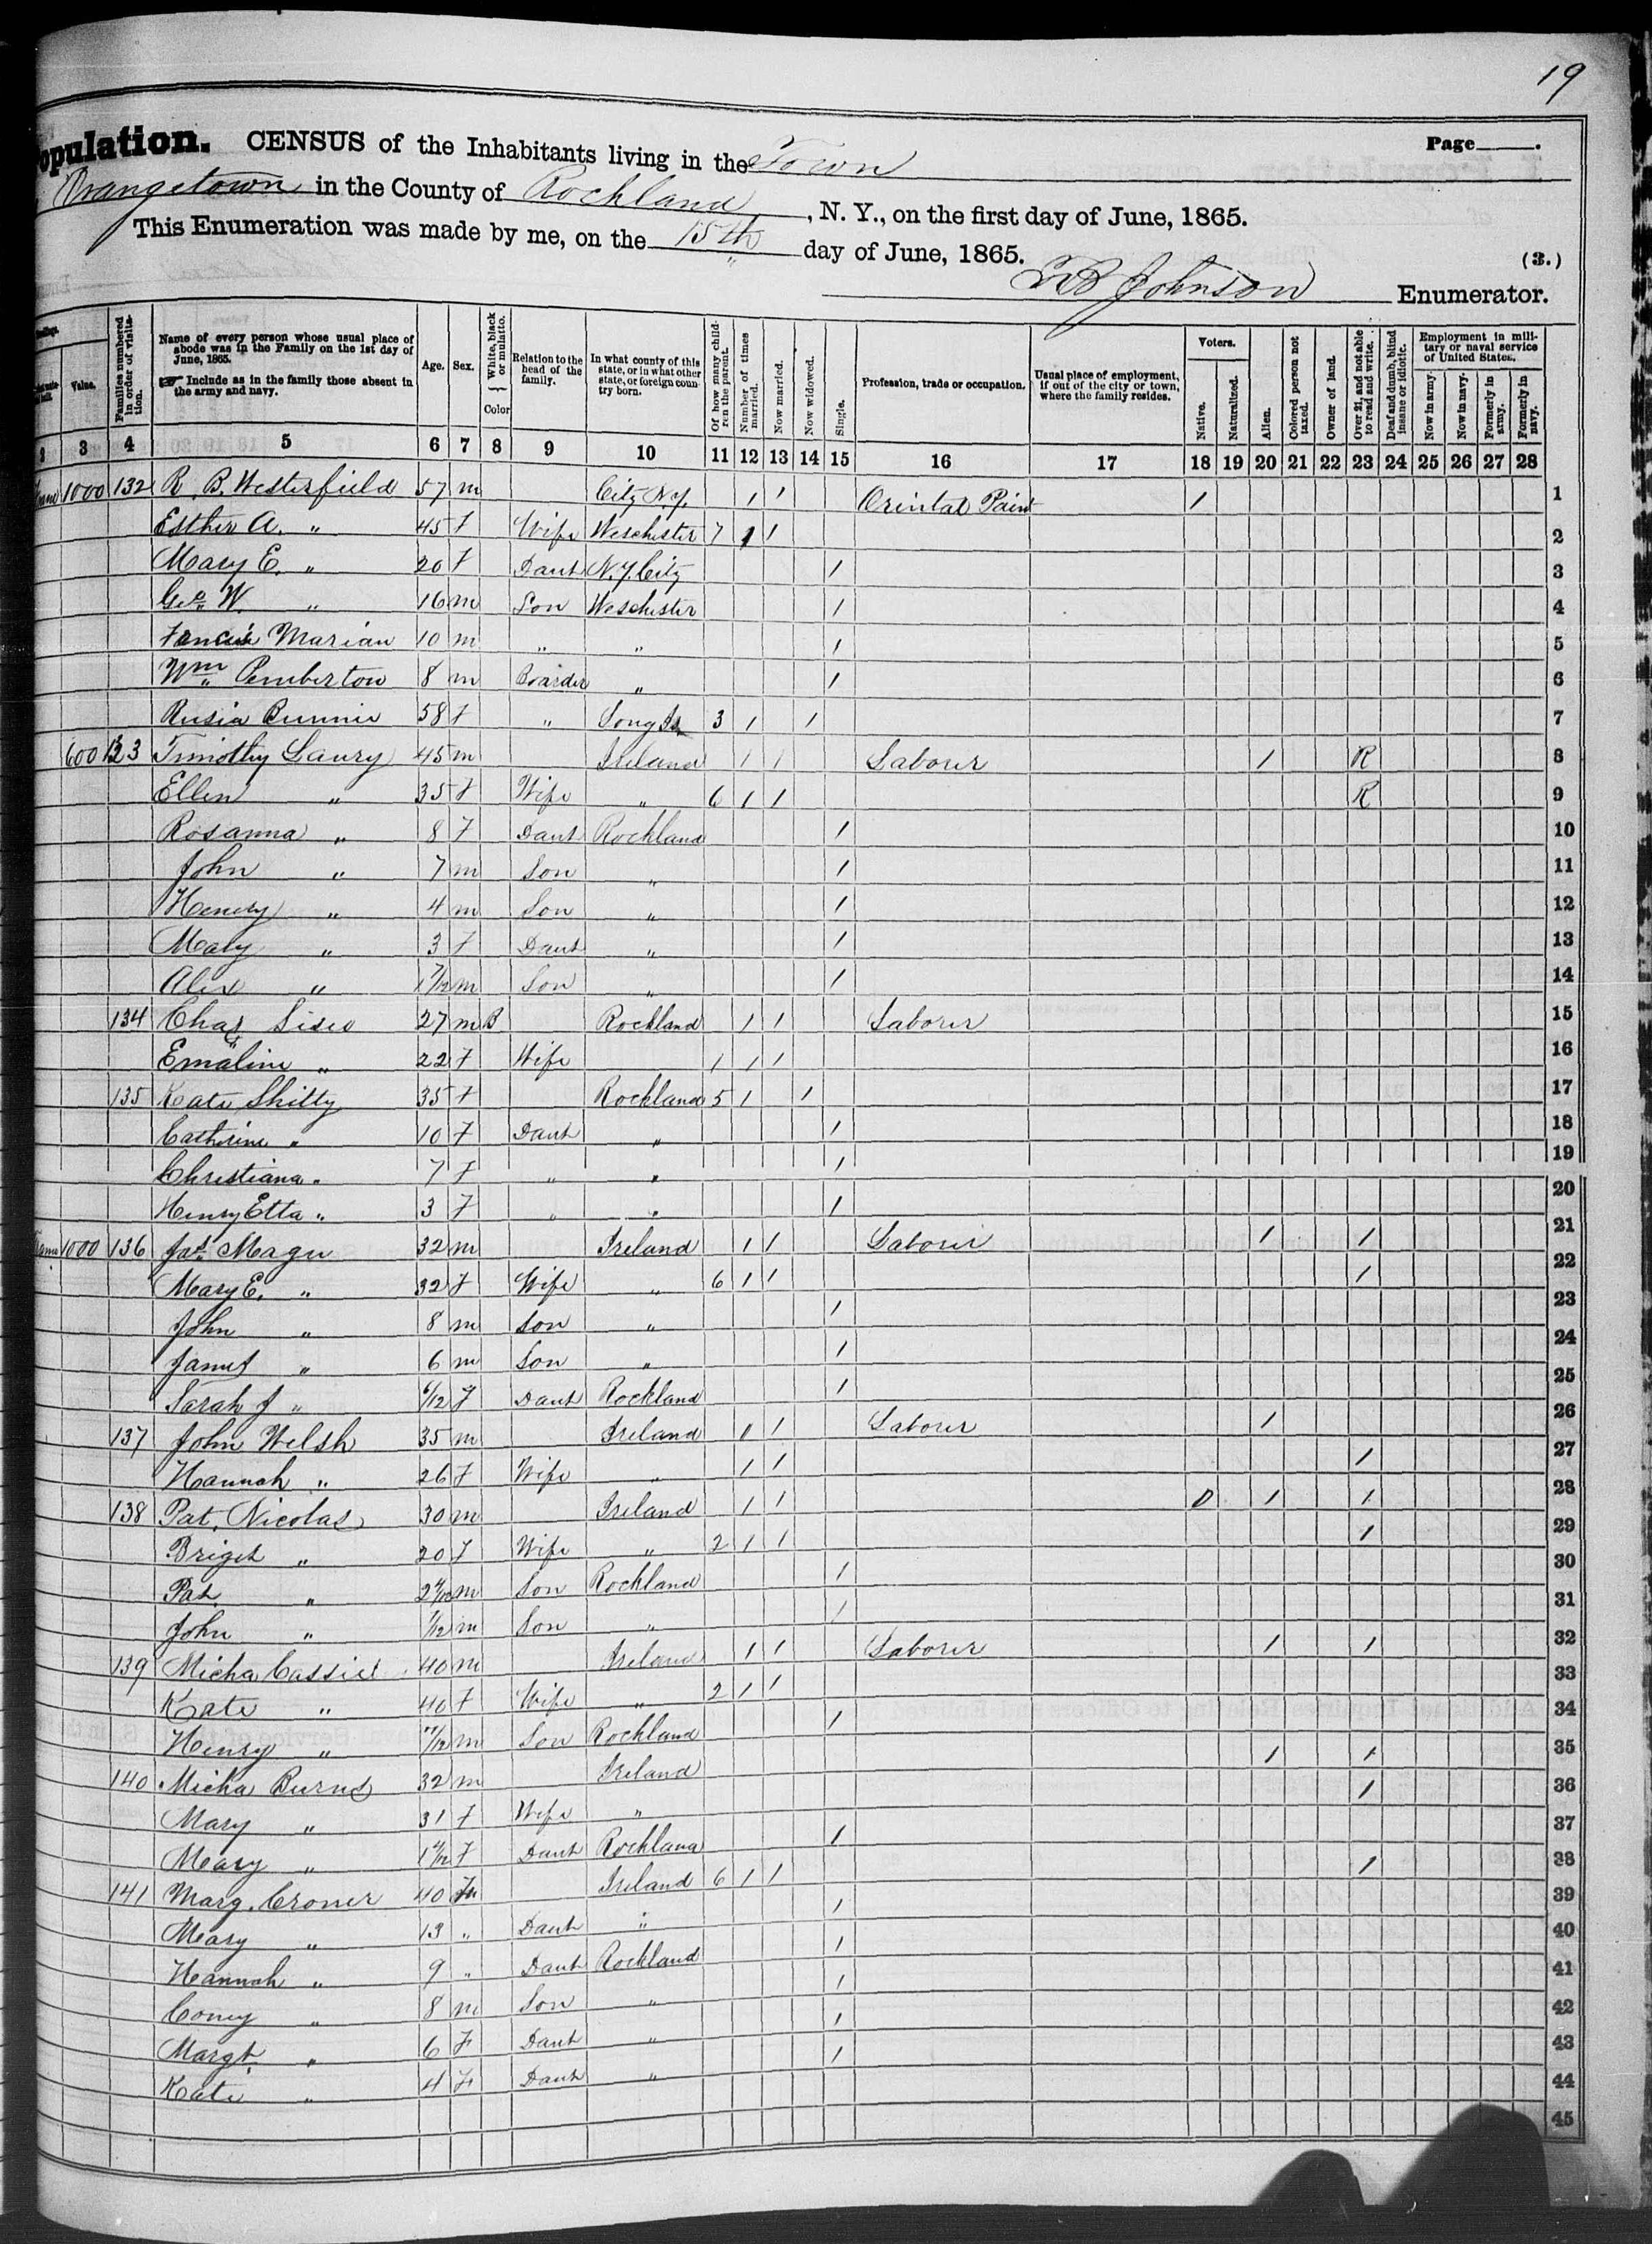 19
Population. CENSUS of the Inhabitants living in the Town Page
Orangetown in the County of Rockland, N. Y., on the first day of June, 1865.
This Enumeration was made by me, on the 15th day of June, 1865. (3.)
Johnson Enumerator.
Value. Families numbered in order of visitation. Name of every person whose usual place of abode was in the Family on the 1st day of June, 1865. ☞ Include as in the family those absent in the army and navy. Age. Sex. White, black or mulatto. Color Relation to the head of the family. In what county of this state, or in what other state, or foreign country born. Of how many children the parent. Number of times married. Now married. Now widowed. Single. Profession, trade or occupation. Usual place of employment, if out of the city or town, where the family resides. Voters. Native. Naturalized. Alien. Colored person not taxed. Owner of land. Over 21, and not able to read and write. Deaf and dumb, blind insane or idiotic. Employment in military or naval service of United States. Now in army. Now in navy. Formerly in army. Formerly in navy.
3 4 5 6 7 8 9 10 11 12 13 14 15 16 17 18 19 20 21 22 23 24 25 26 27 28
1000 132 R. B. Westerfield 57 m City N.Y. 1 1 Orintal Paint 1 1
Esther A. " 45 F Wife Weschister 7 1 1 2
Mary E. " 20 F Daut N.Y. City 1 3
Geo W. " 16 m Son Weschister 1 4
Marian 10 m " " 1 5
Wm Pemberton 8 m Boarder " 1 6
58 F " Long Is 3 1 1 7
600 Timothy Laury 45 m Ireland 1 1 Laborer 1 R 8
Ellen " 35 F Wife " 6 1 1 R 9
Rosanna " 8 F Daut Rockland 1 10
John " 7 m Son " 1 11
Henery " 4 m Son " 1 12
Mary " 3 F Daut " 1 13
Alex " 1 7/12 m Son " 1 14
134 Chas Sisco 27 m B Rockland 1 1 Laborer 15
Emaline " 22 F Wife 1 1 1 16
135 Kate Shilty 35 F Rockland 5 1 1 17
Catherine " 10 F Daut " 1 18
Christiana " 7 F " " 1 19
Henry Etta " 3 F " " 1 20
1000 136 Jas Magee 32 m Ireland 1 1 Laborer 1 1 21
Mary E. " 32 F Wife " 6 1 1 1 22
John " 8 m Son " 1 23
James " 6 m Son " 1 24
Sarah J " 6/12 F Daut Rockland 1 25
137 John Welsh 35 m Ireland 1 1 Laborer 1 26
Hannah " 26 F Wife " 1 1 1 27
138 Pat. Nicolas 30 m Ireland 1 1 1 1 28
Briget " 20 F Wife " 2 1 1 1 29
Pat. " 2 m Son Rockland 1 30
John " 1/12 m Son " 1 31
139 Micha 40 m Ireland 1 1 Laborer 1 1 32
Kate " 40 F Wife " 2 1 1 33
Henry " m Son Rockland 1 34
140 Micha Burns 32 m Ireland 1 1 35
Mary " 31 F Wife " 1 36
Mary " F Daut Rockland 1 37
141 Marg. Croner 40 F Ireland 6 1 1 1 38
Mary " 13 " Daut " 1 39
Hannah " 9 " Daut Rockland 1 40
Coney " 8 m Son " 1 41
Margt. " 6 F Daut " 1 42
Kate " 4 F Daut " 1 43
44
45